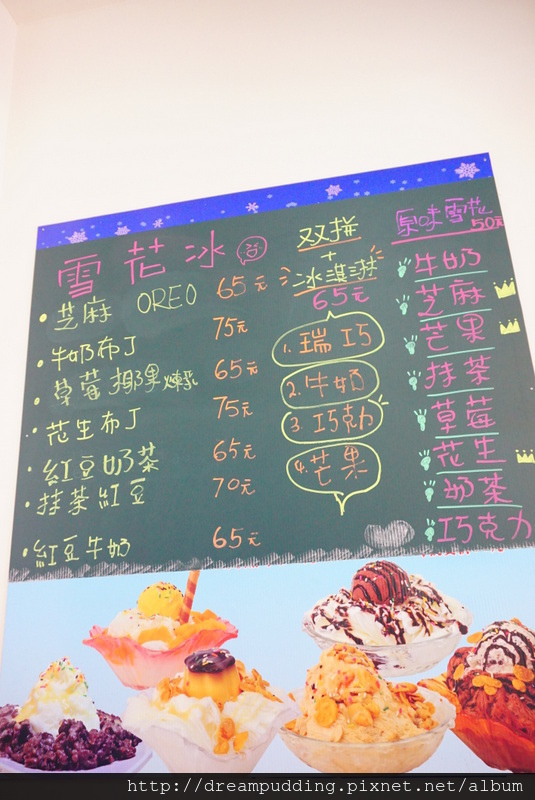 雪花冰
芝麻 OREO 65元
牛奶布丁 75元
草莓椰果煉乳 65元
花生布丁 75元
紅豆奶茶 65元
抹茶紅豆 70元
紅豆牛奶 65元
双拼
+
冰淇淋
65元
1.瑞巧
2.牛奶
3.巧克力
4.芒果
原味雪花
50元
牛奶
芝麻
芒果
抹茶
草莓
花生
奶茶
巧克力
http://dreampudding.pixnet.net/album